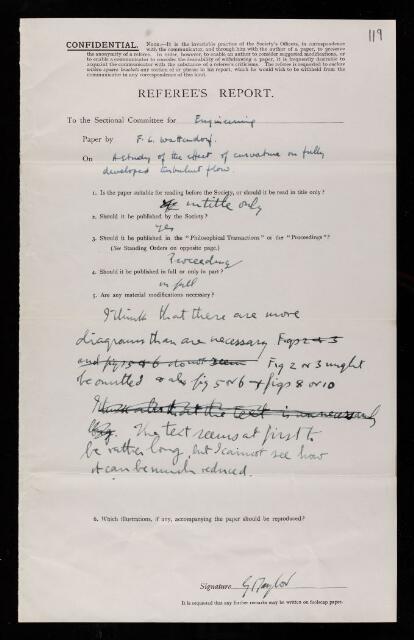 119
CONFIDENTIAL. NOTE.—It is the invariable practice of the Society's Officers, in correspondence
with the communicator and through him with the author of a paper, to preserve
the anonymity of a referee. In order, however, to enable an author to consider suggested modifications, or
to enable a communicator to consider the desirability of withdrawing a paper, it is frequently desirable to
acquaint the communicator with the substance of a referee's criticisms. The referee is requested to enclose
within square brackets any portion of or phrase in his report, which he would wish to be withheld from the
communicator in any correspondence of this kind.
REFEREE'S REPORT.
To the Sectional Committee for Engineering
Paper by F. L. Wattendorf.
On A study of the effect of curvature on fully
developed turbulent flow.
1. Is the paper suitable for reading before the Society, or should it be read in title only?
in title only
2. Should it be published by the Society?
Yes
3. Should it be published in the "Philosophical Transactions" or the "Proceedings"?
(See Standing Orders on opposite page.)
Proceeding
4. Should it be published in full or only in part?
in full
5. Are any material modifications necessary?
I think that there are more
diagrams than are necessary Figs 2 or 3
and fig 15 & 6 do not seem Fig 2 or 3 might
be omitted & also fig 5 or 6 & figs 8 or 10
I that the text is unnecessarily
long. The text seems at first to
be rather long, but I cannot see how
it can be much reduced.
6. Which illustrations, if any, accompanying the paper should be reproduced?
Signature G I Taylor
It is requested that any further remarks may be written on foolscap paper.